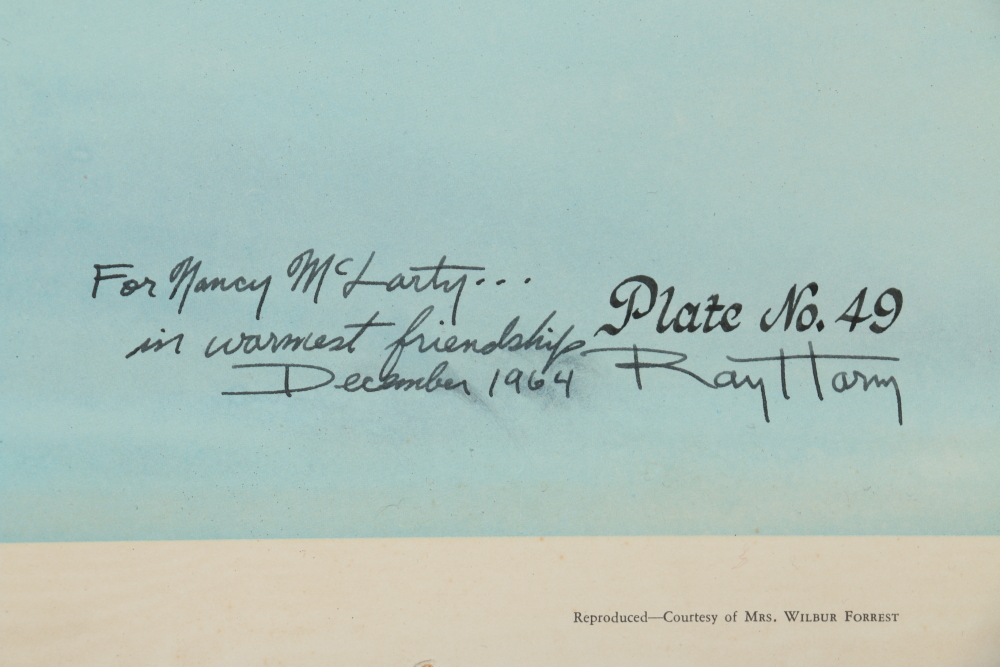 For Nancy McLarty...
in warmest friendship
December 1964
Plate No. 49
Ray Harm
Reproduced—Courtesy of Mrs. Wilbur Forrest